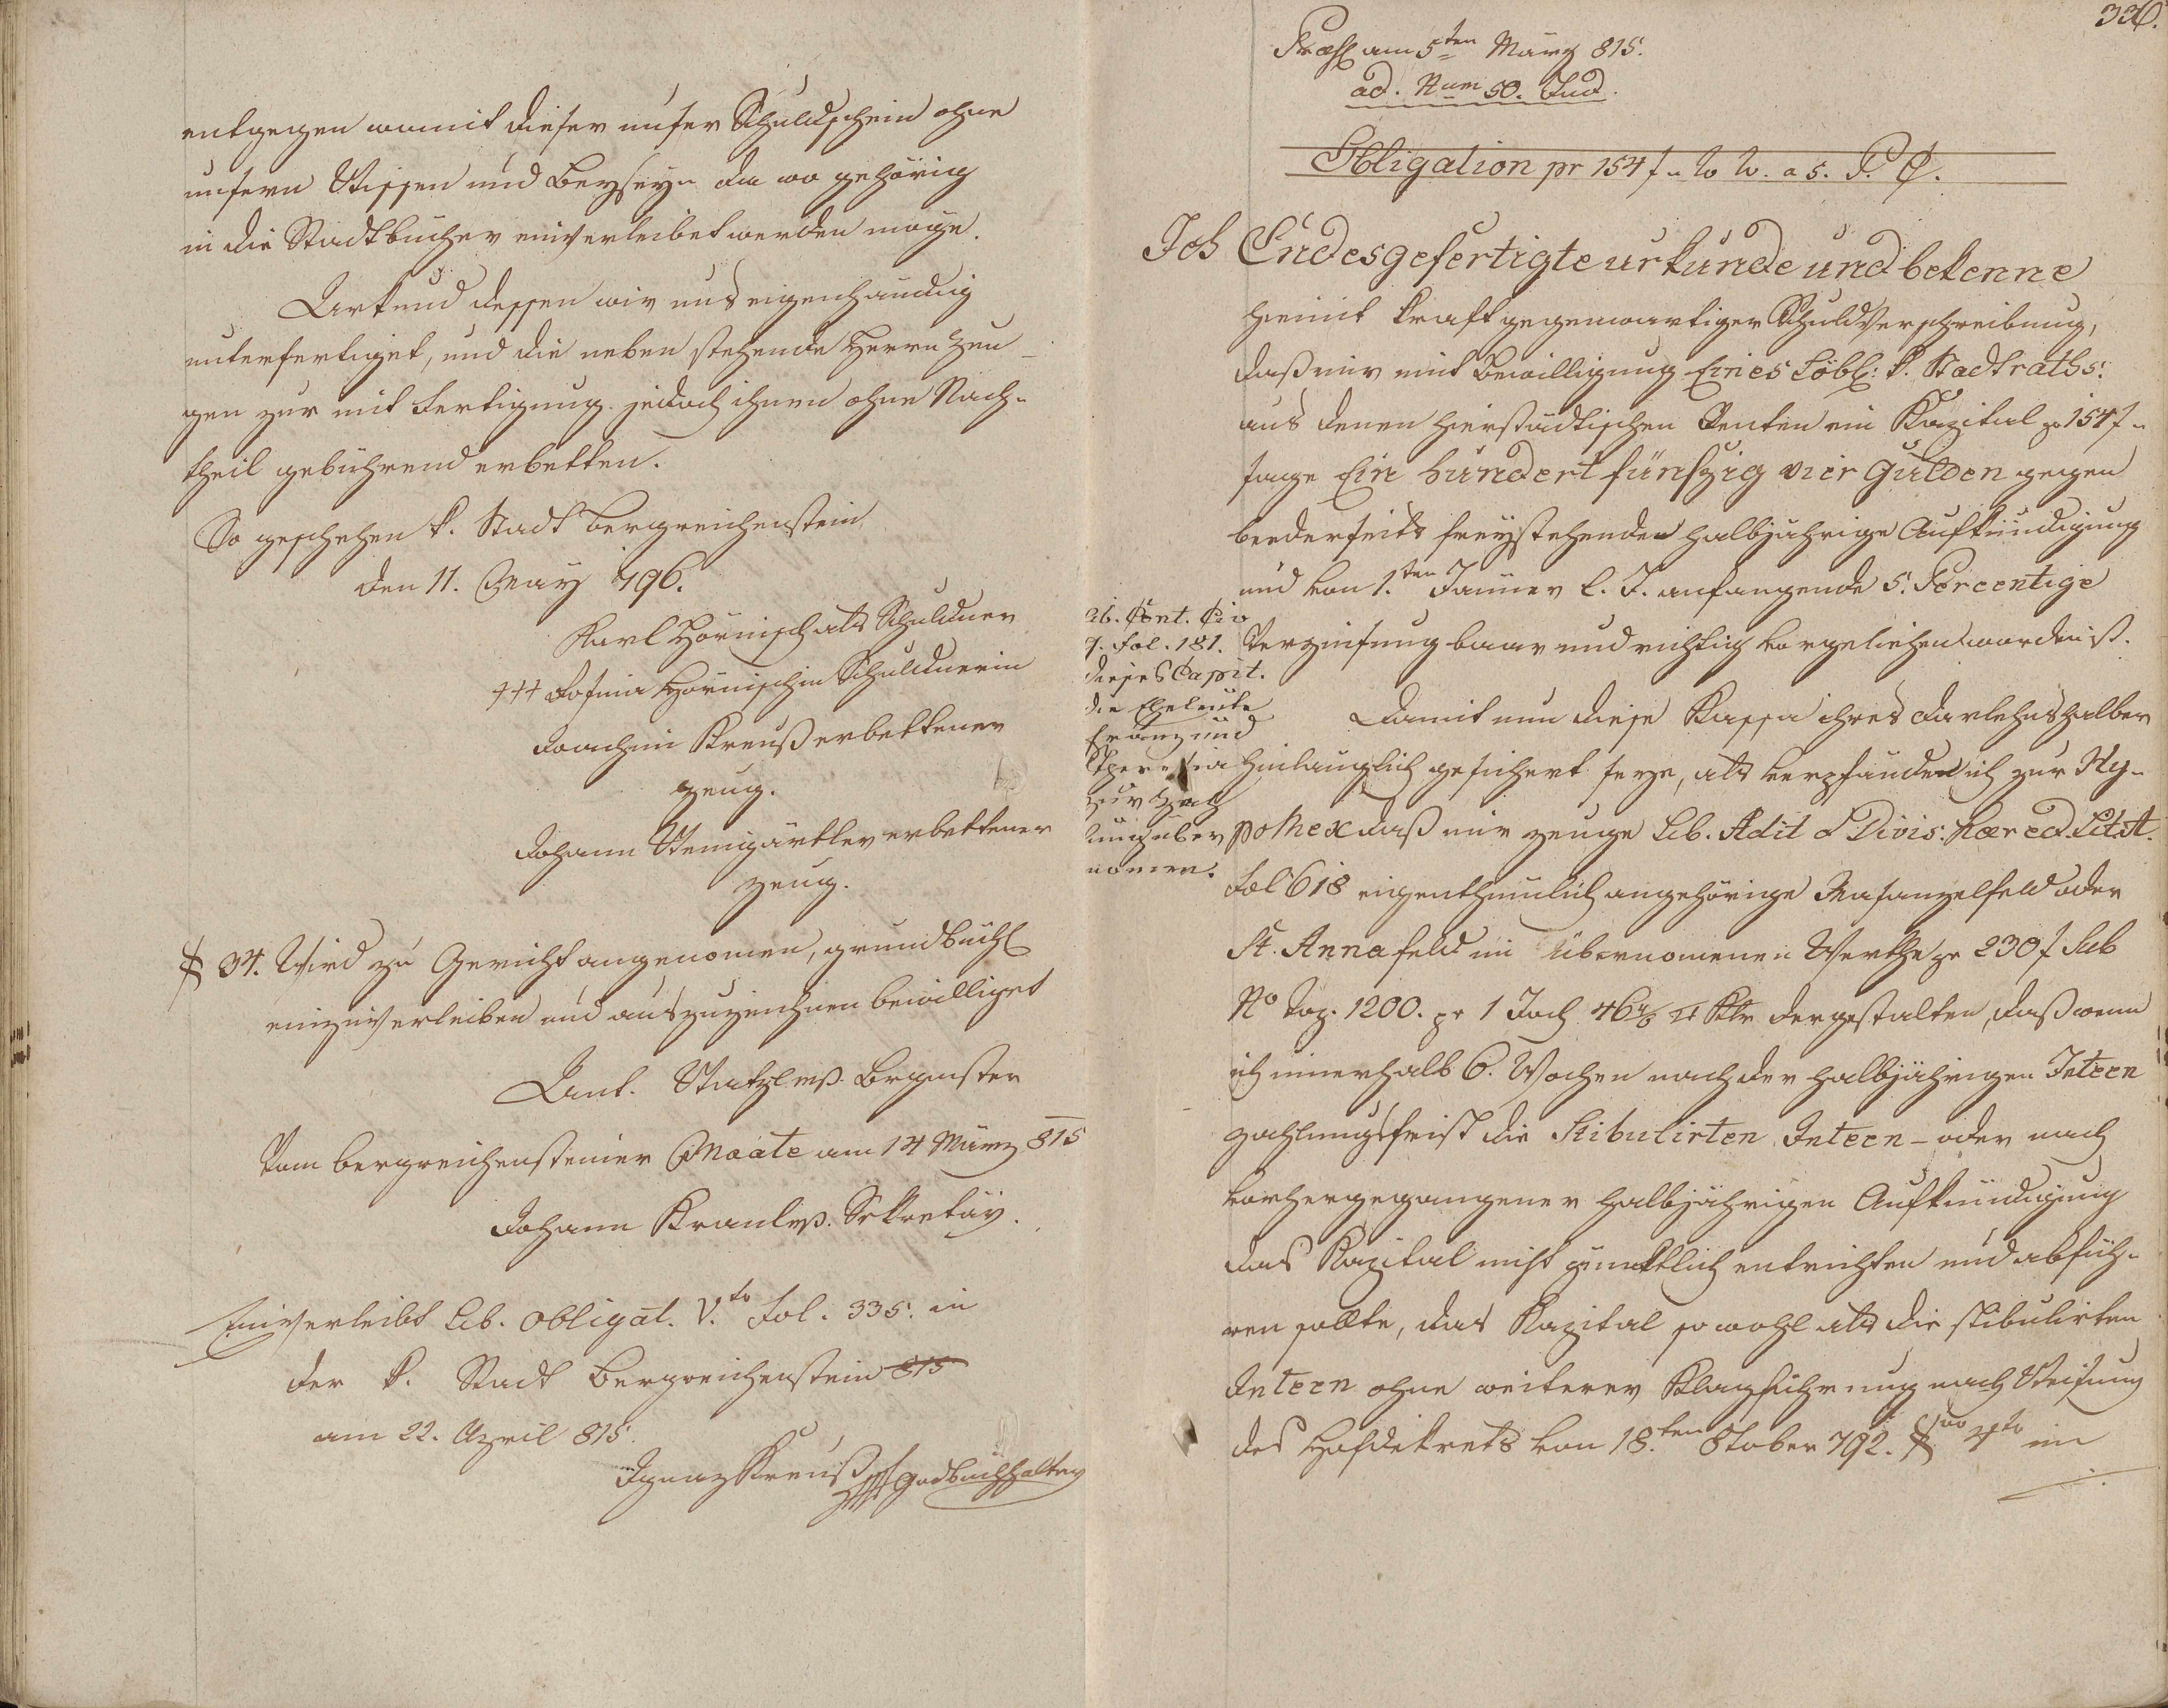 entgegen womit dieser unser Schuldschein ohne
unsern Wissen und Beyseyn da wo gehörig
in die Stadtbücher einverleibet werden möge.
Urkund dessen wir uns eigenhändig
unterfertiget, und die neben stehende Herrn Zeu-
gen zur mit Fertigung jedoch ihnen ohne Nach-
theil gebührend erbetten.
So geschehen k. Stadt Bergreichenstein
den 11. May 796.
Karl Hörnisch als Schuldner
+++ Rosina Hörnischin Schuldnerin
Joachim Kreuß erbettener
Zeug.
Johann Steingärtler erbettener
Zeug.
§ 34. Wird zu Gericht angenomen, grundbüchl
einzuverleiben und auszuzeichnen bewilliget
Ant. Watzl mp. Brgmster
Vom bergreichensteiner Maate am 14 März 815
Johann Kraul mp. Sekretär.
Einverleibt Lib. obligat. V.to Fol. 335. in
der k. Stadt Bergreichenstein 815
am 22. April 815.
Ignaz Kreuß mp Grdbuchhalter
336.
Præs am 5ten März 815.
ad. Num 50. Jud.
Obligation pr 154 f - W W. a 5. P. C.
Ich Endesgefertigte urkunde und bekenne
hiemit kraft gegenwärtiger Schuldverschreibung,
daß mir mit Bewilligung Eines Löbl: k. Stadtraths.
aus denen hierstädtischen Renten ein Kapital pr 154 f -
sage Ein hundert fünfzig vier Gulden gegen
beederseits freystehenden halbjährige Aufkündigung
und von 1.ten Jänner l. J. anfangende 5. Percentige
Verzinsung baar und richtig vorgeliehen worden ist.
Lib. Cont. Civ
9. Fol. 181.
dieses Capit.
die Eheleute
Franz und
Theresia
zur Zah
lung über
nomen.
Damit nun diese Kassa ihres Darlehns halber
hinlänglich gesichert seye, als verpfände ich zur Hy-
pothek daß mir zeuge Lib. Adit & Divis: hæred. Lit A.
Fol 618 eigenthumlich angehörige Wasanzelfeld oder
St. Anna feld im übernomenen Werthe pr 230 f sub
No Top. 1200. pr 1 Joch 46 4/6 □ Kltr dergestalten, daß wenn
ich innerhalb 6. Wochen nach der halbjährigen Inteen
zahlungsfrist die Stibulirten Inteen - oder nach
vorhergegangener halbjährigen Aufkündigung
das Kapital nicht pünktlich entrichten und abfüh-
ren sollte, das Kapital so wohl als die stibulirten
Inteen ohne weiterer Klagführung nach Weisung
des Hofdekrets von 18.ten 8tober 792. §no 4to im